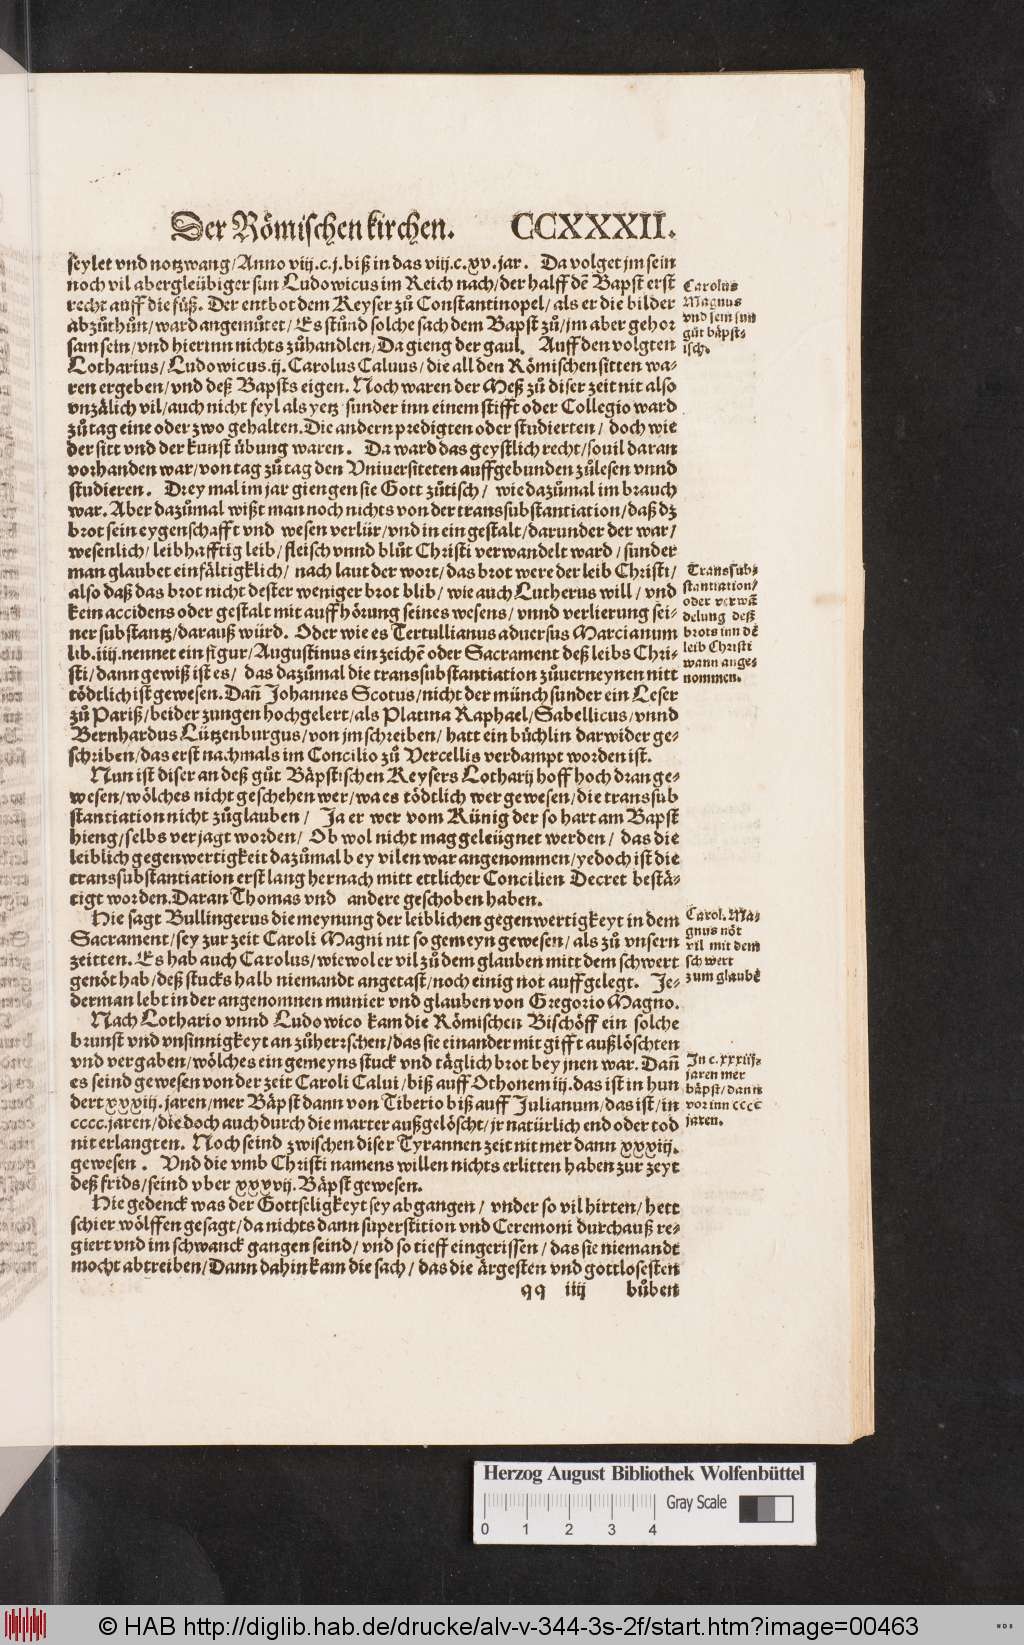 Der Römischen kirchen. CCXXXII.
seylet vnd notzwang/Anno viij.c.j.biß in das viij.c.xv.jar. Da volget jm sein
noch vil abergleübiger sun Ludowicus im Reich nach/der halff dẽ Bapst erst
recht auff die füß. Der entbot dem Keyser zů Constantinopel/als er die bilder
abzůthůn/ward angemůtet/Es stůnd solche sach dem Bapst zů/jm aber gehor
sam sein/vnd hierinn nichts zůhandlen/Da gieng der gaul. Auff den volgten
Lotharius/Ludowicus.ij.Carolus Caluus/die all den Römischen sitten wa-
ren ergeben/vnd deß Bapsts eigen. Noch waren der Meß zů diser zeit nit also
vnzälich vil/auch nicht feyl als yetz sunder inn einem stifft oder Collegio ward
zů tag eine oder zwo gehalten.Die andern predigten oder studierten/ doch wie
der sitt vnd der kunst übung waren. Da ward das geystlich recht/souil daran
vorhanden war/von tag zů tag den Vniuersiteten auffgebunden zůlesen vnnd
studieren. Drey mal im jar giengen sie Gott zůtisch/ wie dazůmal im brauch
war. Aber dazůmal wißt man noch nichts von der transsubstantiation/daß dz
brot sein eygenschafft vnd wesen verlür/vnd in ein gestalt/darunder der war/
wesenlich/leibhafftig leib/fleisch vnnd blůt Christi verwandelt ward/sunder
man glaubet einfältigklich/ nach laut der wort/das brot were der leib Christi/
also daß das brot nicht dester weniger brot blib/wie auch Lutherus will/vnd
kein accidens oder gestalt mit auffhörung seines wesens/vnnd verlierung sei-
ner substantz/darauß würd. Oder wie es Tertullianus aduersus Marcianum
lib.iiij.nennet ein figur/Augustinus ein zeichẽ oder Sacrament deß leibs Chri-
sti/dann gewiß ist es/ das dazůmal die transsubstantiation zůuerneynen nitt
tödtlich ist gewesen.Dañ Johannes Scotus/nicht der münch sunder ein Leser
zů Pariß/beider zungen hochgelert/als Platina Raphael/Sabellicus/vnnd
Bernhardus Lützenburgus/von jm schreiben/hatt ein bůchlin darwider ge-
schriben/das erst nachmals im Concilio zů Vercellis verdampt worden ist.
Nun ist diser an deß gůt Bäpstischen Keysers Lotharij hoff hoch dran ge-
wesen/wölches nicht geschehen wer/wa es tödtlich wer gewesen/die transsub
stantiation nicht zůglauben/ Ja er wer vom Künig der so hart am Bapst
hieng/selbs verjagt worden/ Ob wol nicht mag geleügnet werden/ das die
leiblich gegenwertigkeit dazůmal bey vilen war angenommen/yedoch ist die
transsubstantiation erst lang hernach mitt ettlicher Concilien Decret bestä-
tigt worden.Daran Thomas vnd andere geschoben haben.
Hie sagt Bullingerus die meynung der leiblichen gegenwertigkeyt in dem
Sacrament/sey zur zeit Caroli Magni nit so gemeyn gewesen/als zů vnsern
zeitten. Es hab auch Carolus/wiewol er vil zů dem glauben mitt dem schwert
genöt hab/deß stucks halb niemandt angetast/noch einig not auffgelegt. Je-
derman lebt in der angenomnen munier vnd glauben von Gregorio Magno.
Nach Lothario vnnd Ludowico kam die Römischen Bischöff ein solche
brunst vnd vnsinnigkeyt an zůherrschen/das sie einander mit gifft außlöschten
vnd vergaben/wölches ein gemeyns stuck vnd täglich brot bey jnen war. Dañ
es seind gewesen von der zeit Caroli Calui/biß auff Othonem iij.das ist in hun
dert xxxiij.jaren/mer Bäpst dann von Tiberio biß auff Julianum/das ist/in
cccc.jaren/die doch auch durch die marter außgelöscht/jr natürlich end oder tod
nit erlangten. Noch seind zwischen diser Tyrannen zeit nit mer dann xxxiij.
gewesen. Vnd die vmb Christi namens willen nichts erlitten haben zur zeyt
deß frids/seind vber xxxvij.Bäpst gewesen.
Hie gedenck was der Gottseligkeyt sey abgangen/ vnder so vil hirten/hett
schier wölffen gesagt/da nichts dann superstition vnd Ceremoni durchauß re-
giert vnd im schwanck gangen seind/vnd so tieff eingerissen/das sie niemandt
mocht abtreiben/Dann dahin kam die sach/das die ärgesten vnd gottlosesten
qq iiij bůben
Carolus
Magnus
vnd sein sun
gůt bäpst-
isch.
Transsub-
stantiation/
oder verwã
delung deß
brots inn dẽ
leib Christi
wann ange-
nommen.
Carol. Ma-
gnus nöt
vil mit dem
schwert
zum glaubẽ
In c.xxxiij.
jaren mer
bäpst/dann
vor inn cccc
jaren.
Herzog August Bibliothek Wolfenbüttel
Gray Scale
0 1 2 3 4
© HAB http://diglib.hab.de/drucke/alv-v-344-3s-2f/start.htm?image=00463